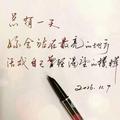 总有一天
你会站在最亮的地方
活成自己曾经渴望的模样
2016.11.9